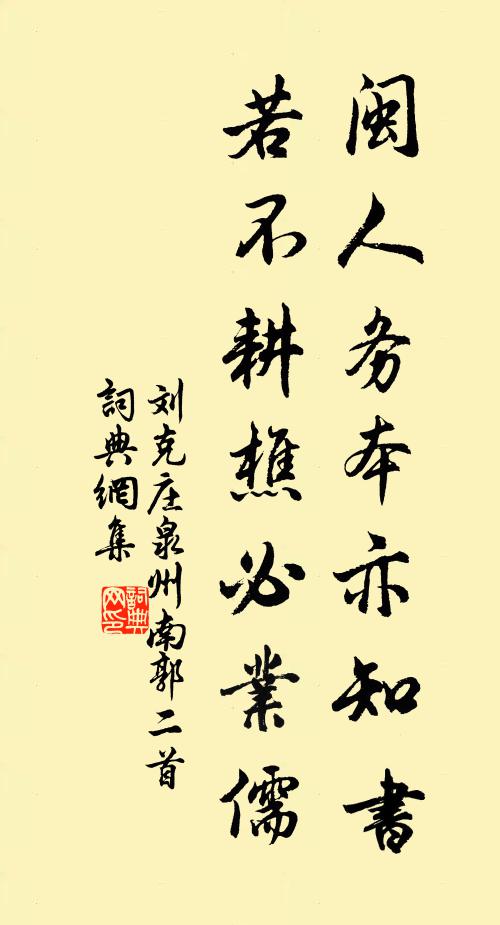 闽人务本亦知書
若不耕樵必業儒
刘克庄泉州南郭二首
詞典網集
詞典网印